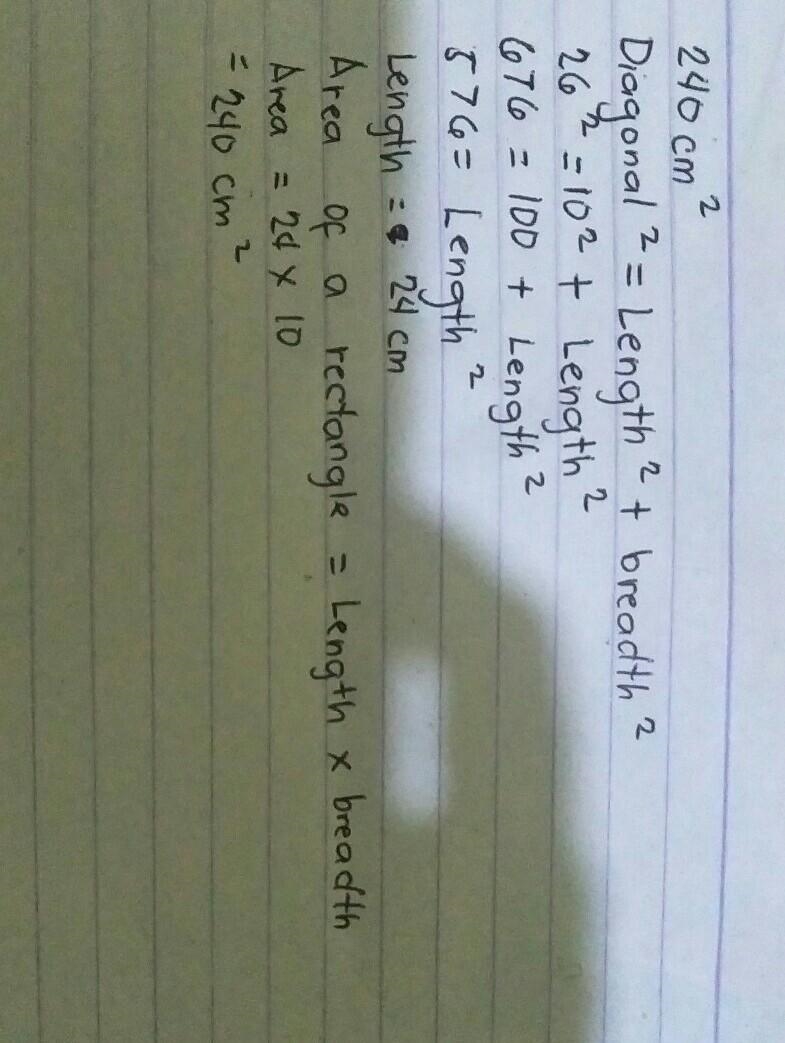 240 cm²
Diagonal² = Length² + breadth²
26² = 10² + Length²
676 = 100 + Length²
576 = Length²
Length = 24 cm
Area of a rectangle = Length x breadth
Area = 24 x 10
= 240 cm²